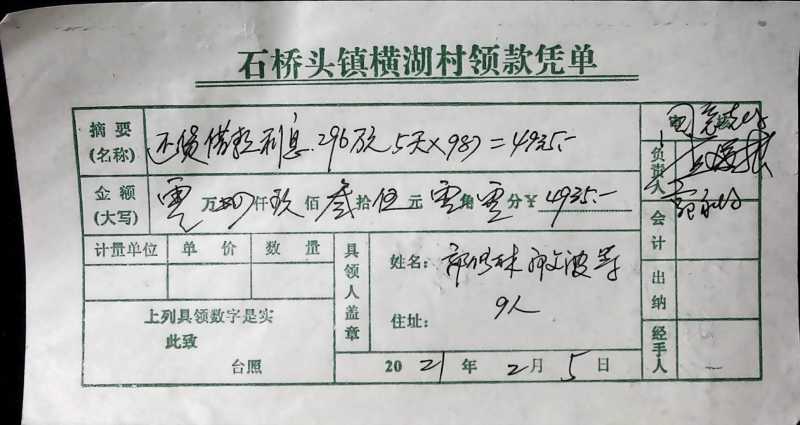 石桥头镇横湖村领款凭单
摘要(名称) 还贷借款利息.296万元 5天×987=4935.-
金额(大写) 零万四仟玖佰叁拾伍元零角零分¥4935.-
计量单位 单价 数量
具领人盖章
姓名: 等
9人
住址:
上列具领数字是实
此致
台照
2021年2月5日
负责人
会计
出纳
经手人